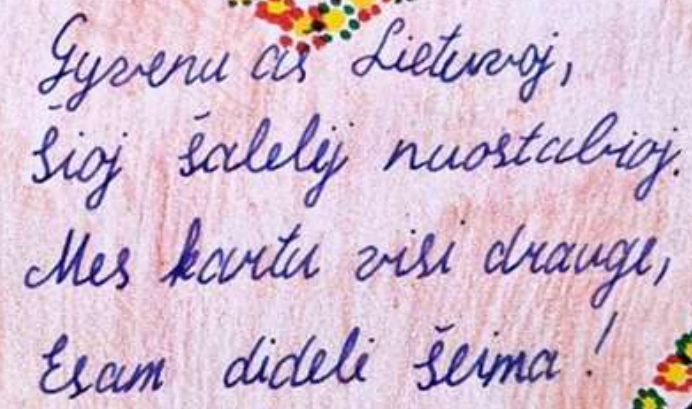 Gyvenu aš Lietuvoj,
Šioj šalelėj nuostabioj.
Mes kartu visi drauge,
Esam dideli šeima!